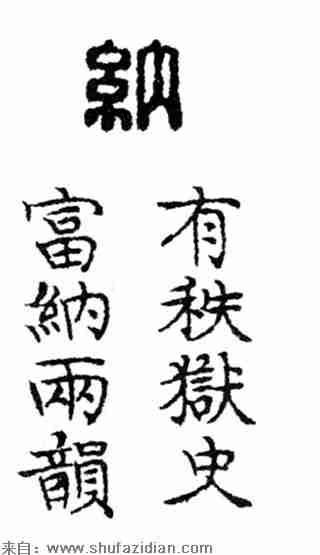 納
有秩獄史
富納兩韻
来自：www.shufazidian.com